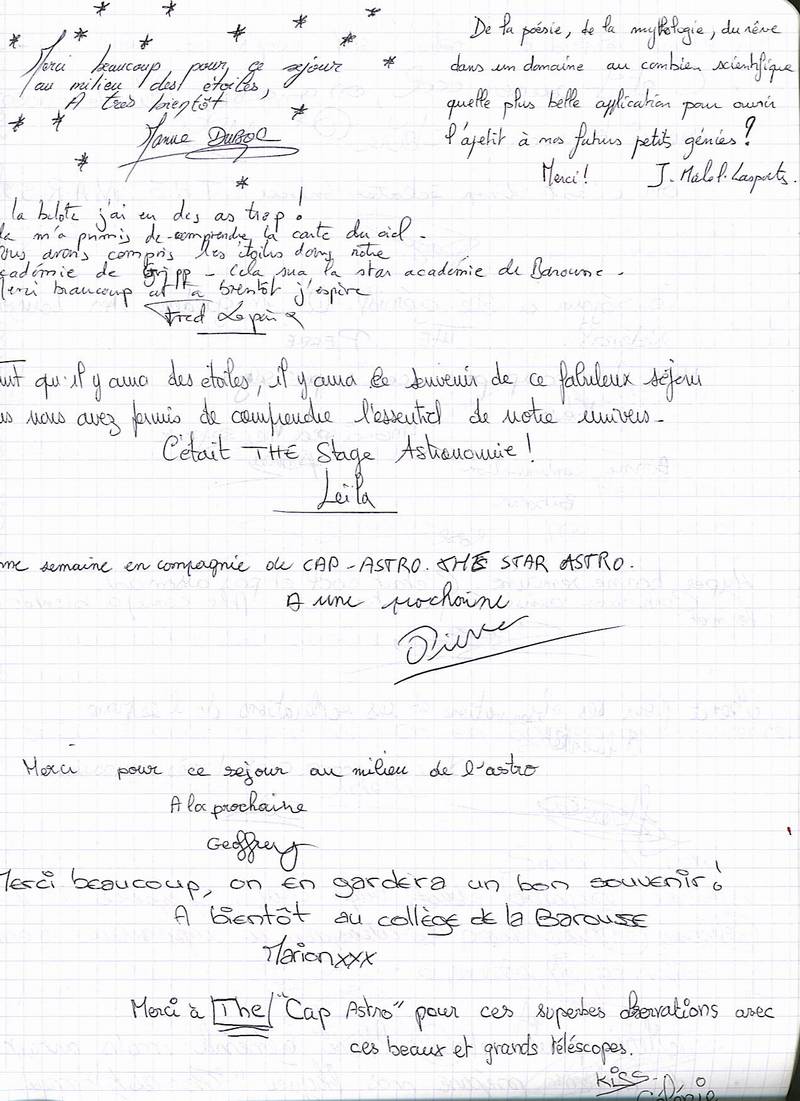 Merci beaucoup pour ce séjour
au milieu des étoiles,
A très bientôt
DUBOC
De la poésie, de la mythologie, du rêve
dans un domaine au combien scientifique
quelle plus belle application pour ouvrir
l'apetit à nos futurs petits génies?
Merci! J.
la belote j'ai eu des as trop!
m'a permis de comprendre la carte du ciel.
avons compris les étoiles dans notre
académie de Gripp - Cela sera la star académie de Barousse.
Merci beaucoup et a bientôt j'espère
Fred Lepine
qu'il y aura des étoiles, il y aura le souvenir de ce fabuleux séjour
nous avez permis de comprendre l'essentiel de notre univers.
C'était THE Stage Astronomie!
Leïla
semaine en compagnie de CAP-ASTRO. THE STAR ASTRO.
A une prochaine
Pierre
Merci pour ce sejour au milieu de l'astro
A la prochaine
Geoffrey
Merci beaucoup, on en gardera un bon souvenir!
A bientôt au collège de la Barousse
Marion xxx
Merci à The "Cap Astro" pour ces superbes observations avec
ces beaux et grands téléscopes.
Kiss